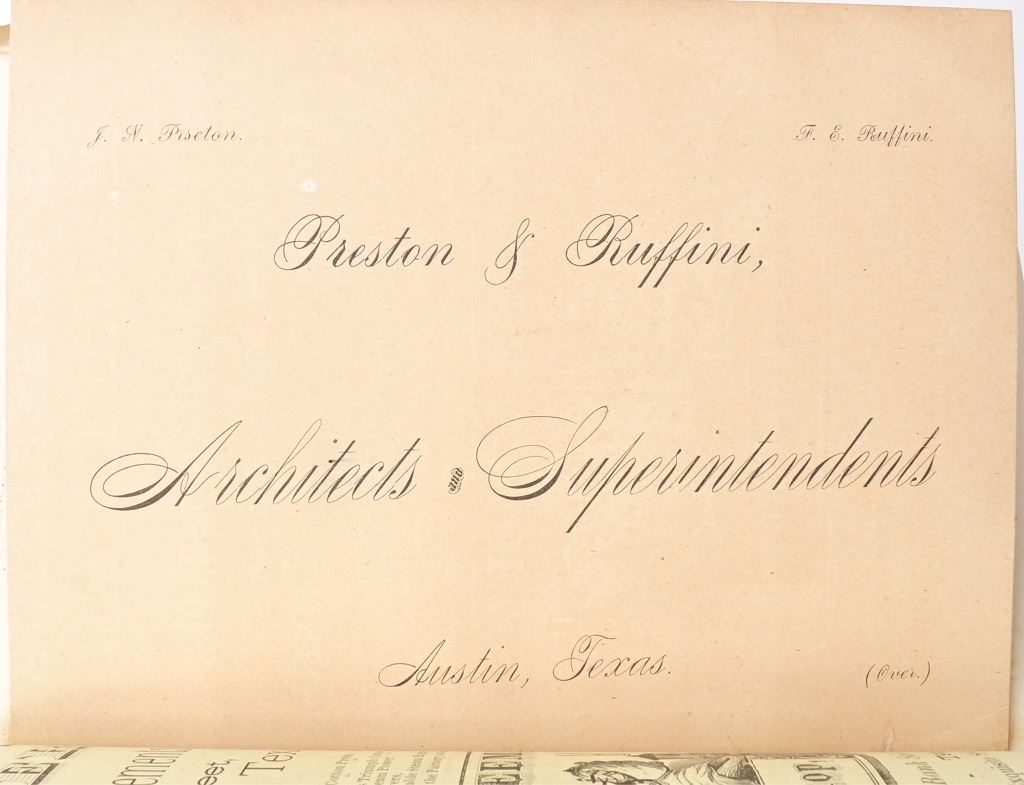 J. N. Priseton. F. E. Ruffini.
Preston & Ruffini,
Architects and Superintendents
Austin, Texas. (Over.)